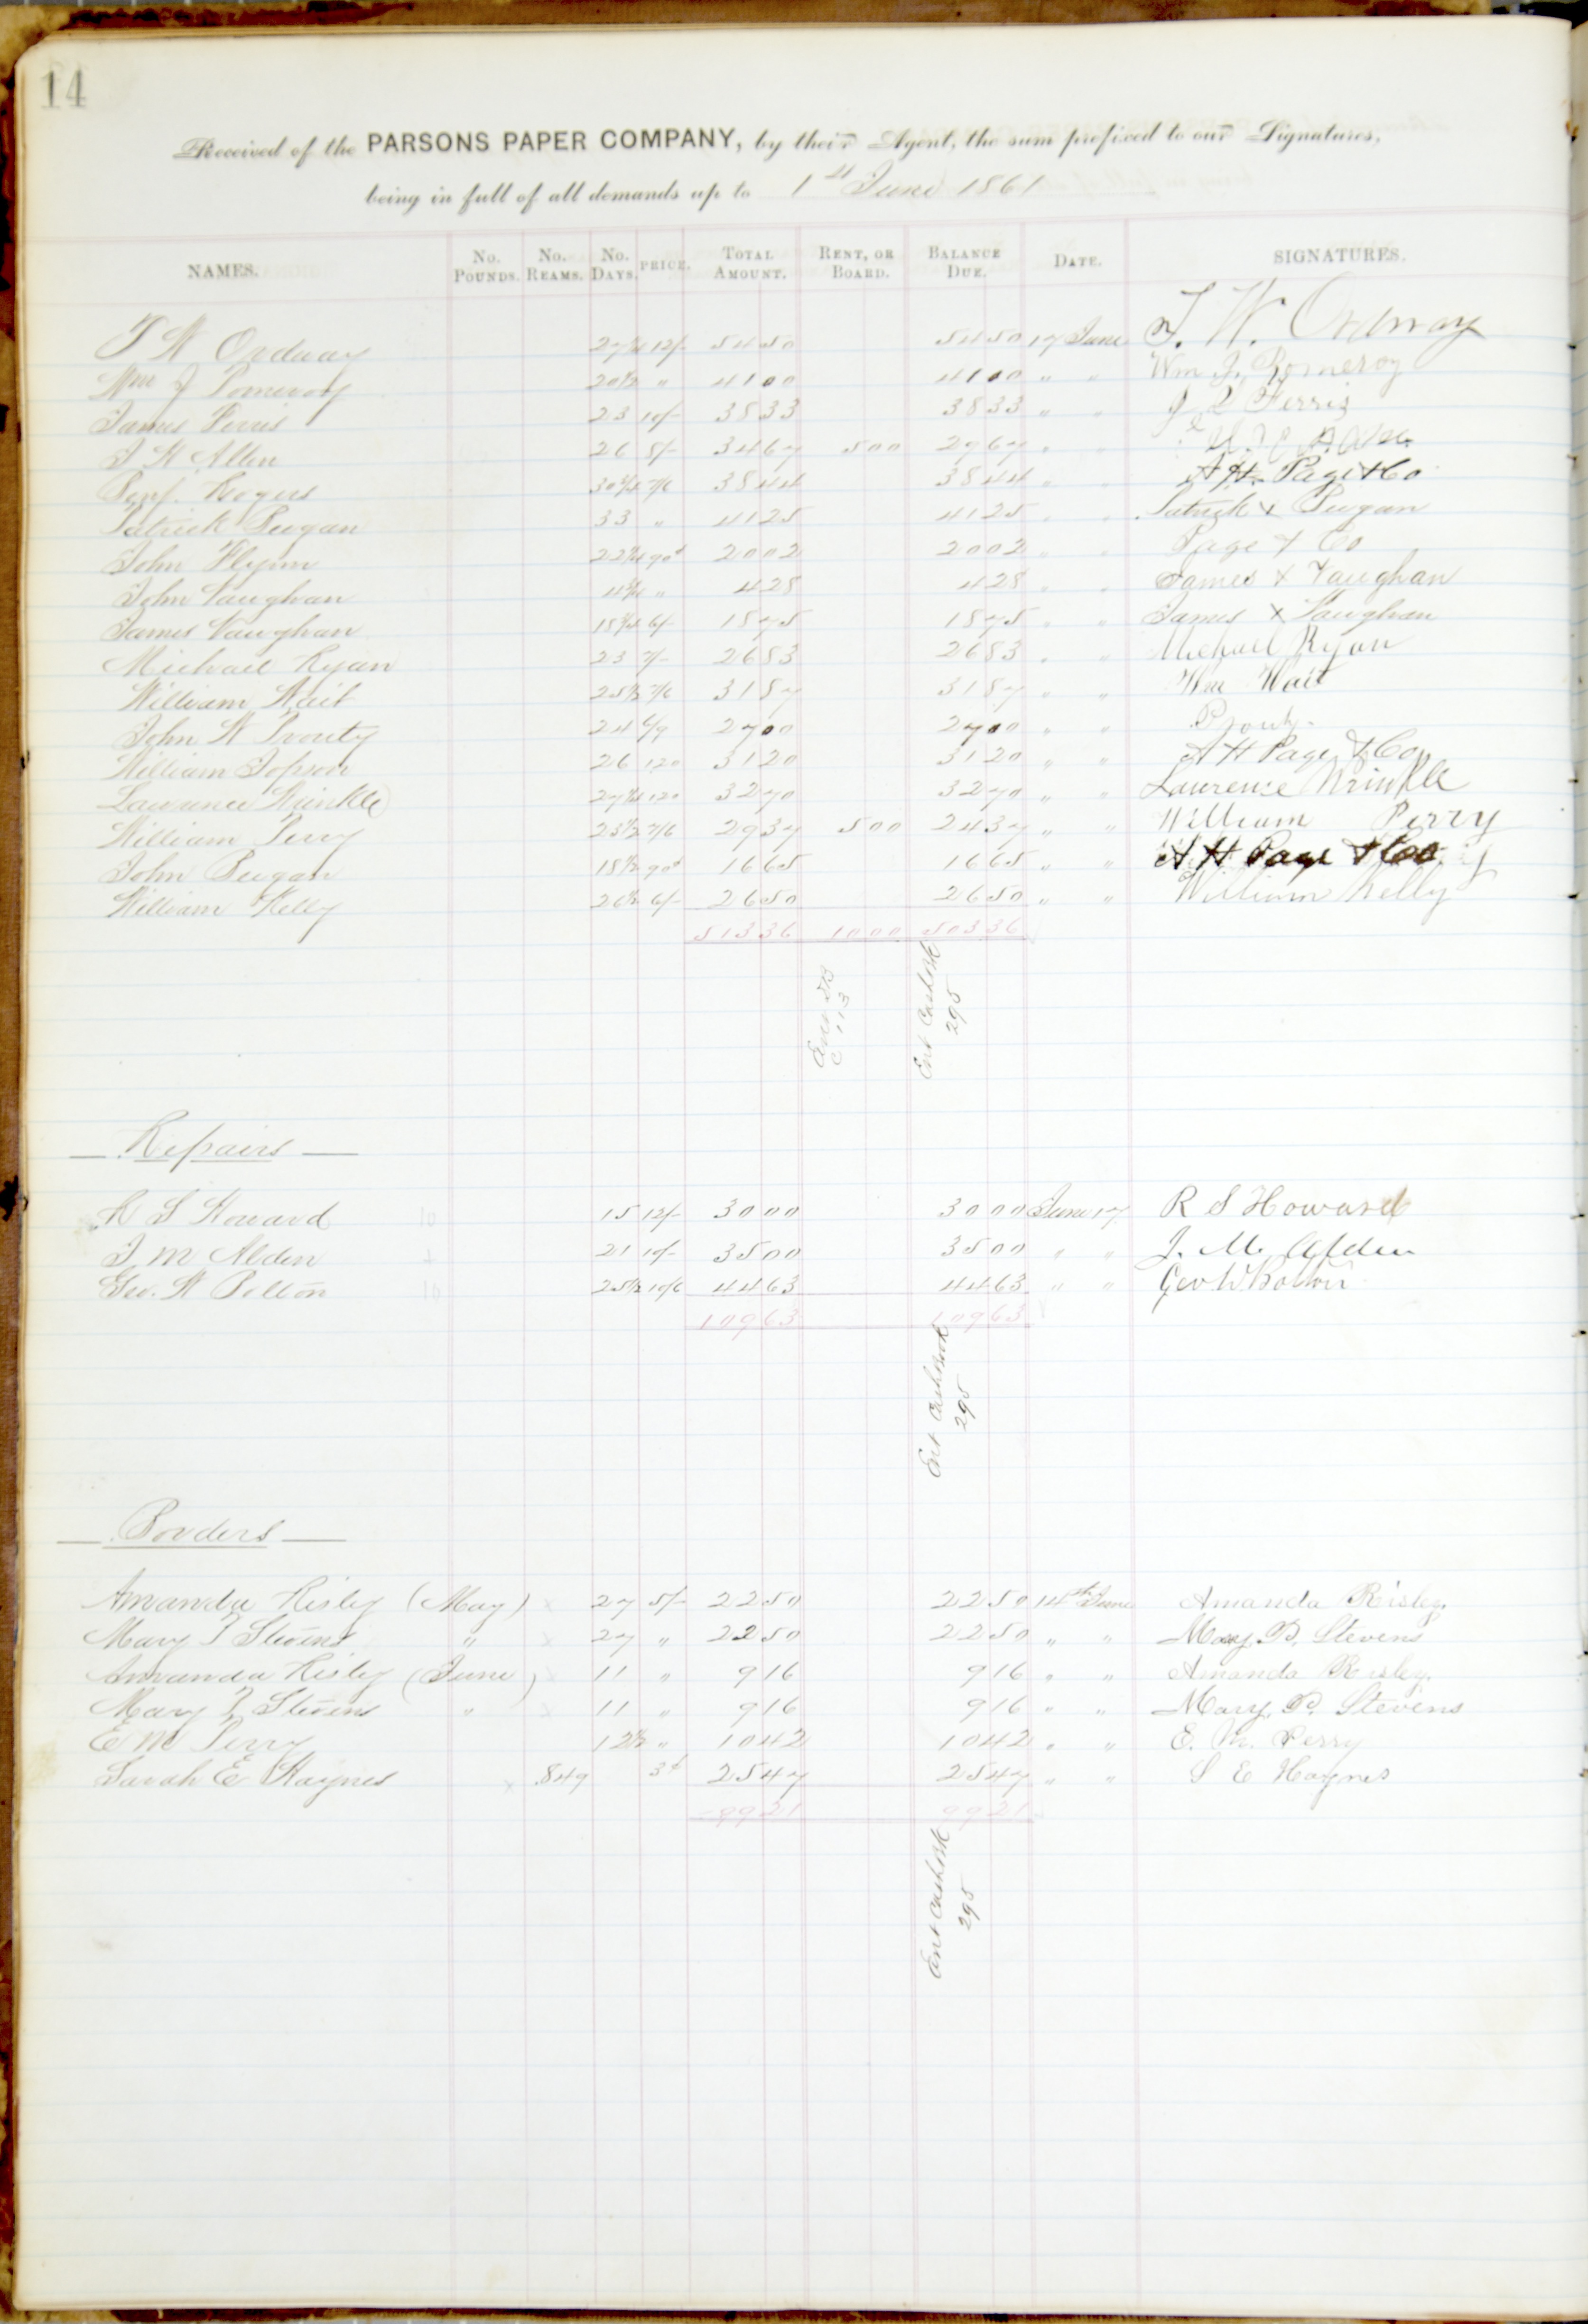 14
Received of the PARSONS PAPER COMPANY, by their Agent, the sum prefixed to our Signatures,
being in full of all demands up to 1st June 1861
NAMES. No. Pounds. No. Reams. No. Days. PRICE. Total Amount. Rent, or Board. Balance Due. Date. SIGNATURES.
T W Ordway 27 1/4 12/- 54 50 54 50 17 June T. W. Ordway
Wm J Pomeroy 20 1/2 " 41 00 41 00 " " Wm J. Pomeroy
James Ferris 23 10/- 38 33 38 33 " " J L Ferris
J W Allen 26 8/- 34 67 5 00 29 67 " "
Benj. Rogers 30 3/4 7/6 38 44 38 44 " " A H. Page & Co
Patrick Dugan 33 " 41 25 41 25 " " Patrick x Dugan
John Flynn 22 1/4 90d 20 02 20 02 " " Page & Co
John Vaughan 4 3/4 " 4 28 4 28 " " James x Vaughan
James Vaughan 18 3/4 6/- 18 75 18 75 " " James x Vaughan
Michael Ryan 23 7/- 26 83 26 83 " " Michael Ryan
William Wait 25 1/2 7/6 31 87 31 87 " " Wm Wait
John W Prouty 24 6/9 27 00 27 00 " " Prouty
William Jopson 26 120 31 20 31 20 " " A H Page & Co
Lawrence Wrinkle 27 1/4 120 32 70 32 70 " " Laurence Wrinkle
William Perry 23 1/2 7/6 29 37 5 00 24 37 " " William Perry
John Dugan 18 1/2 90d 16 65 16 65 " " A H Page & Co
William Kelly 26 1/2 6/- 26 50 26 50 " " William Kelly
513 36 10 00 503 36
113
Ent Cashbk
295
Repairs
R S Howard 15 12/- 30 00 30 00 June 17 R S Howard
J M Alden 21 10/- 35 00 35 00 " " J. M. Alden
Geo. W Bolton 25 1/2 10/6 44 63 44 63 " " Geo W Bolton
109 63 109 63
Ent Cashbook
295
Borders
Amanda Risley (May) x 27 5/- 22 50 22 50 14th June Amanda Risley.
Mary P Stevens " x 27 " 22 50 22 50 " " Mary P. Stevens
Amanda Risley (June) x 11 " 9 16 9 16 " " Amanda Risley.
Mary P Stevens " x 11 " 9 16 9 16 " " Mary. P. Stevens
E M Perry 12 1/2 " 10 42 10 42 " " E. M. Perry
Sarah E Haynes x 849 3d 25 47 25 47 " " S E Haynes
99 21 99 21
Ent Cashbk
295